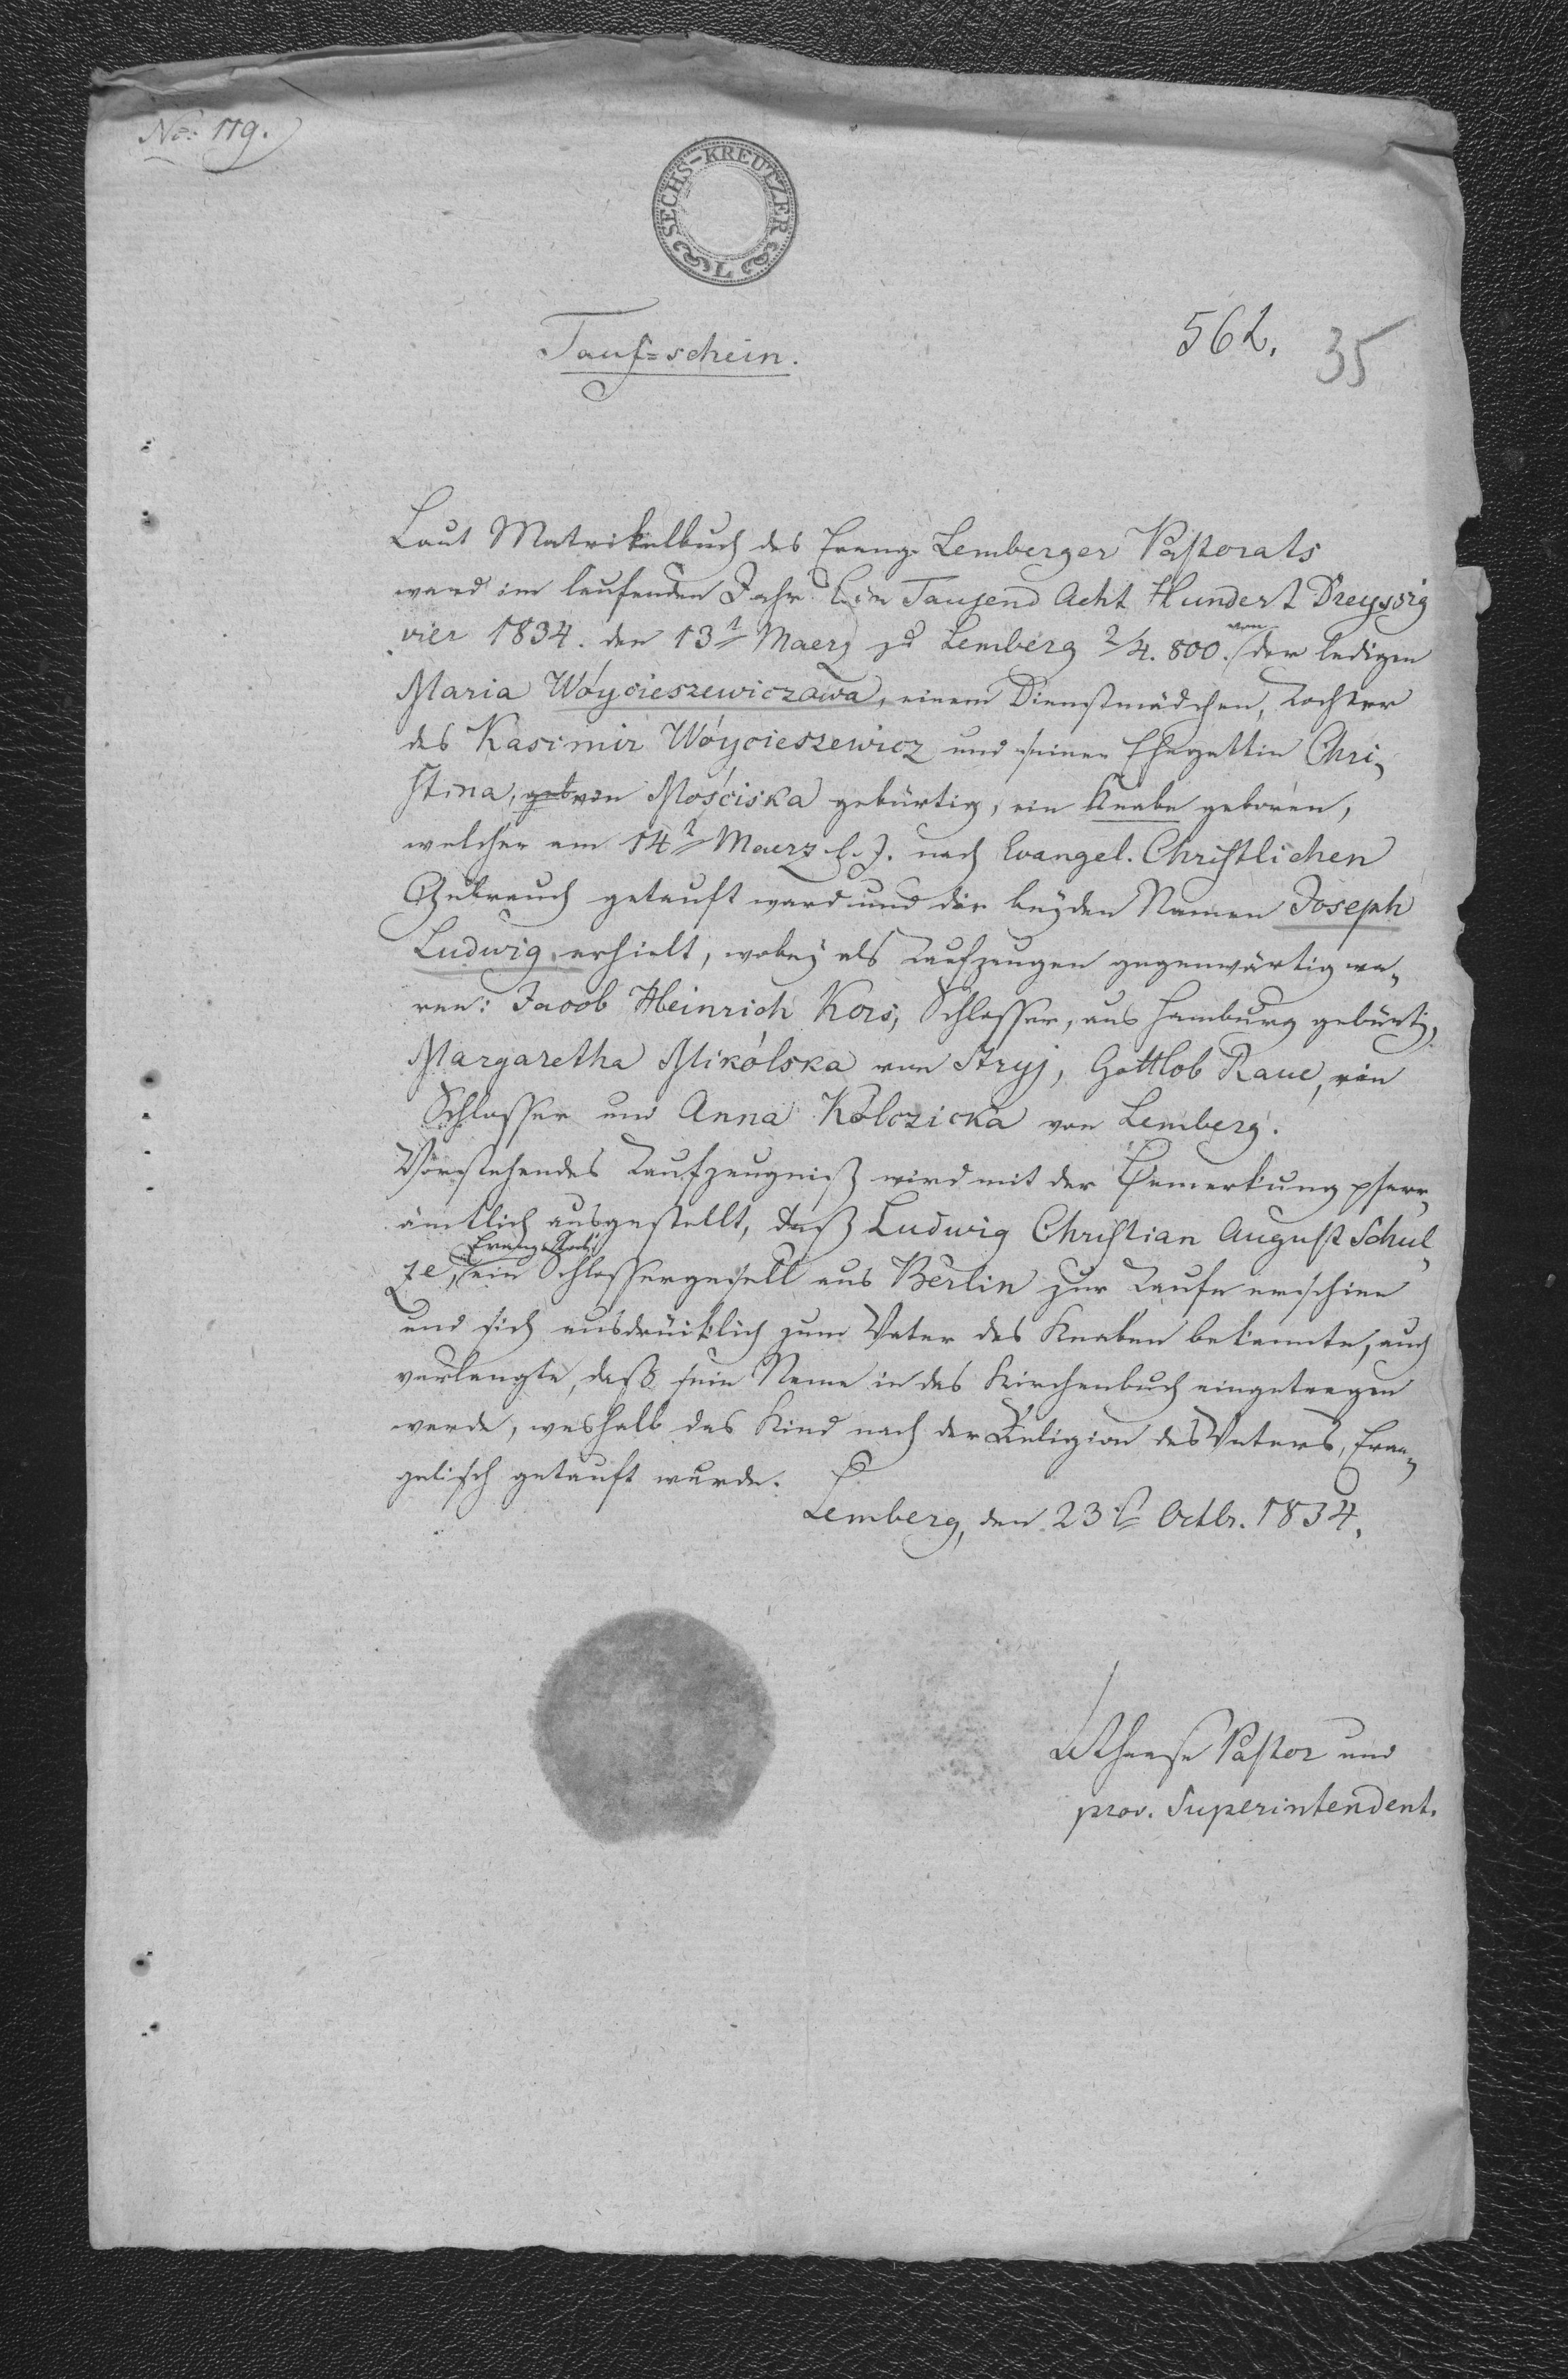 No: 119.
SECHS-KREUTZER
L
562. 35
Tauf=schein.
Laut Matrikelbuch des Evang. Lemberger Pastorats
ward im laufenden Jahr Ein Tausend Acht Hundert Dreyssig
vier 1834. den 13t Maerz zu Lemberg 2/4. 800. von der ledigen
Maria Wóycieszewiczawa, einem Dienstmädchen, Tochter
des Kasimir Wóycieszewicz und seiner Ehegattin Chri-
stina, geb von Mościska gebürtig, ein Knabe geboren,
welcher am 14t Maerz l. J. nach Evangel. Christlichen
Gebrauch getauft ward und die beyden Namen Joseph
Ludwig erhielt, wobey als Taufzeugen gegenwärtig wa-
ren: Jacob Heinrich Kors, Schlosser, aus Hamburg gebürtig,
Margaretha Mikólska von Stryj, Gottlob Raue, ein
Schlosser und Anna Kólczicka von Lemberg.
Vorstehendes Taufzeugniß wird mit der Bemerkung pfarr-
ämtlich ausgestellt, daß Ludwig Christian August Schul-
ze, Evang. ein Schlossergesell aus Berlin zur Taufe erschien
und sich ausdrücklich zum Vater des Knaben bekannte, auch
verlangte, daß sein Name in das Kirchenbuch eingetragen
werde, weshalb das Kind nach der Religion des Vaters, Evan-
gelisch getauft wurde.
Lemberg, den 23t Octbr. 1834.
Pastor und
prov. Superintendent.